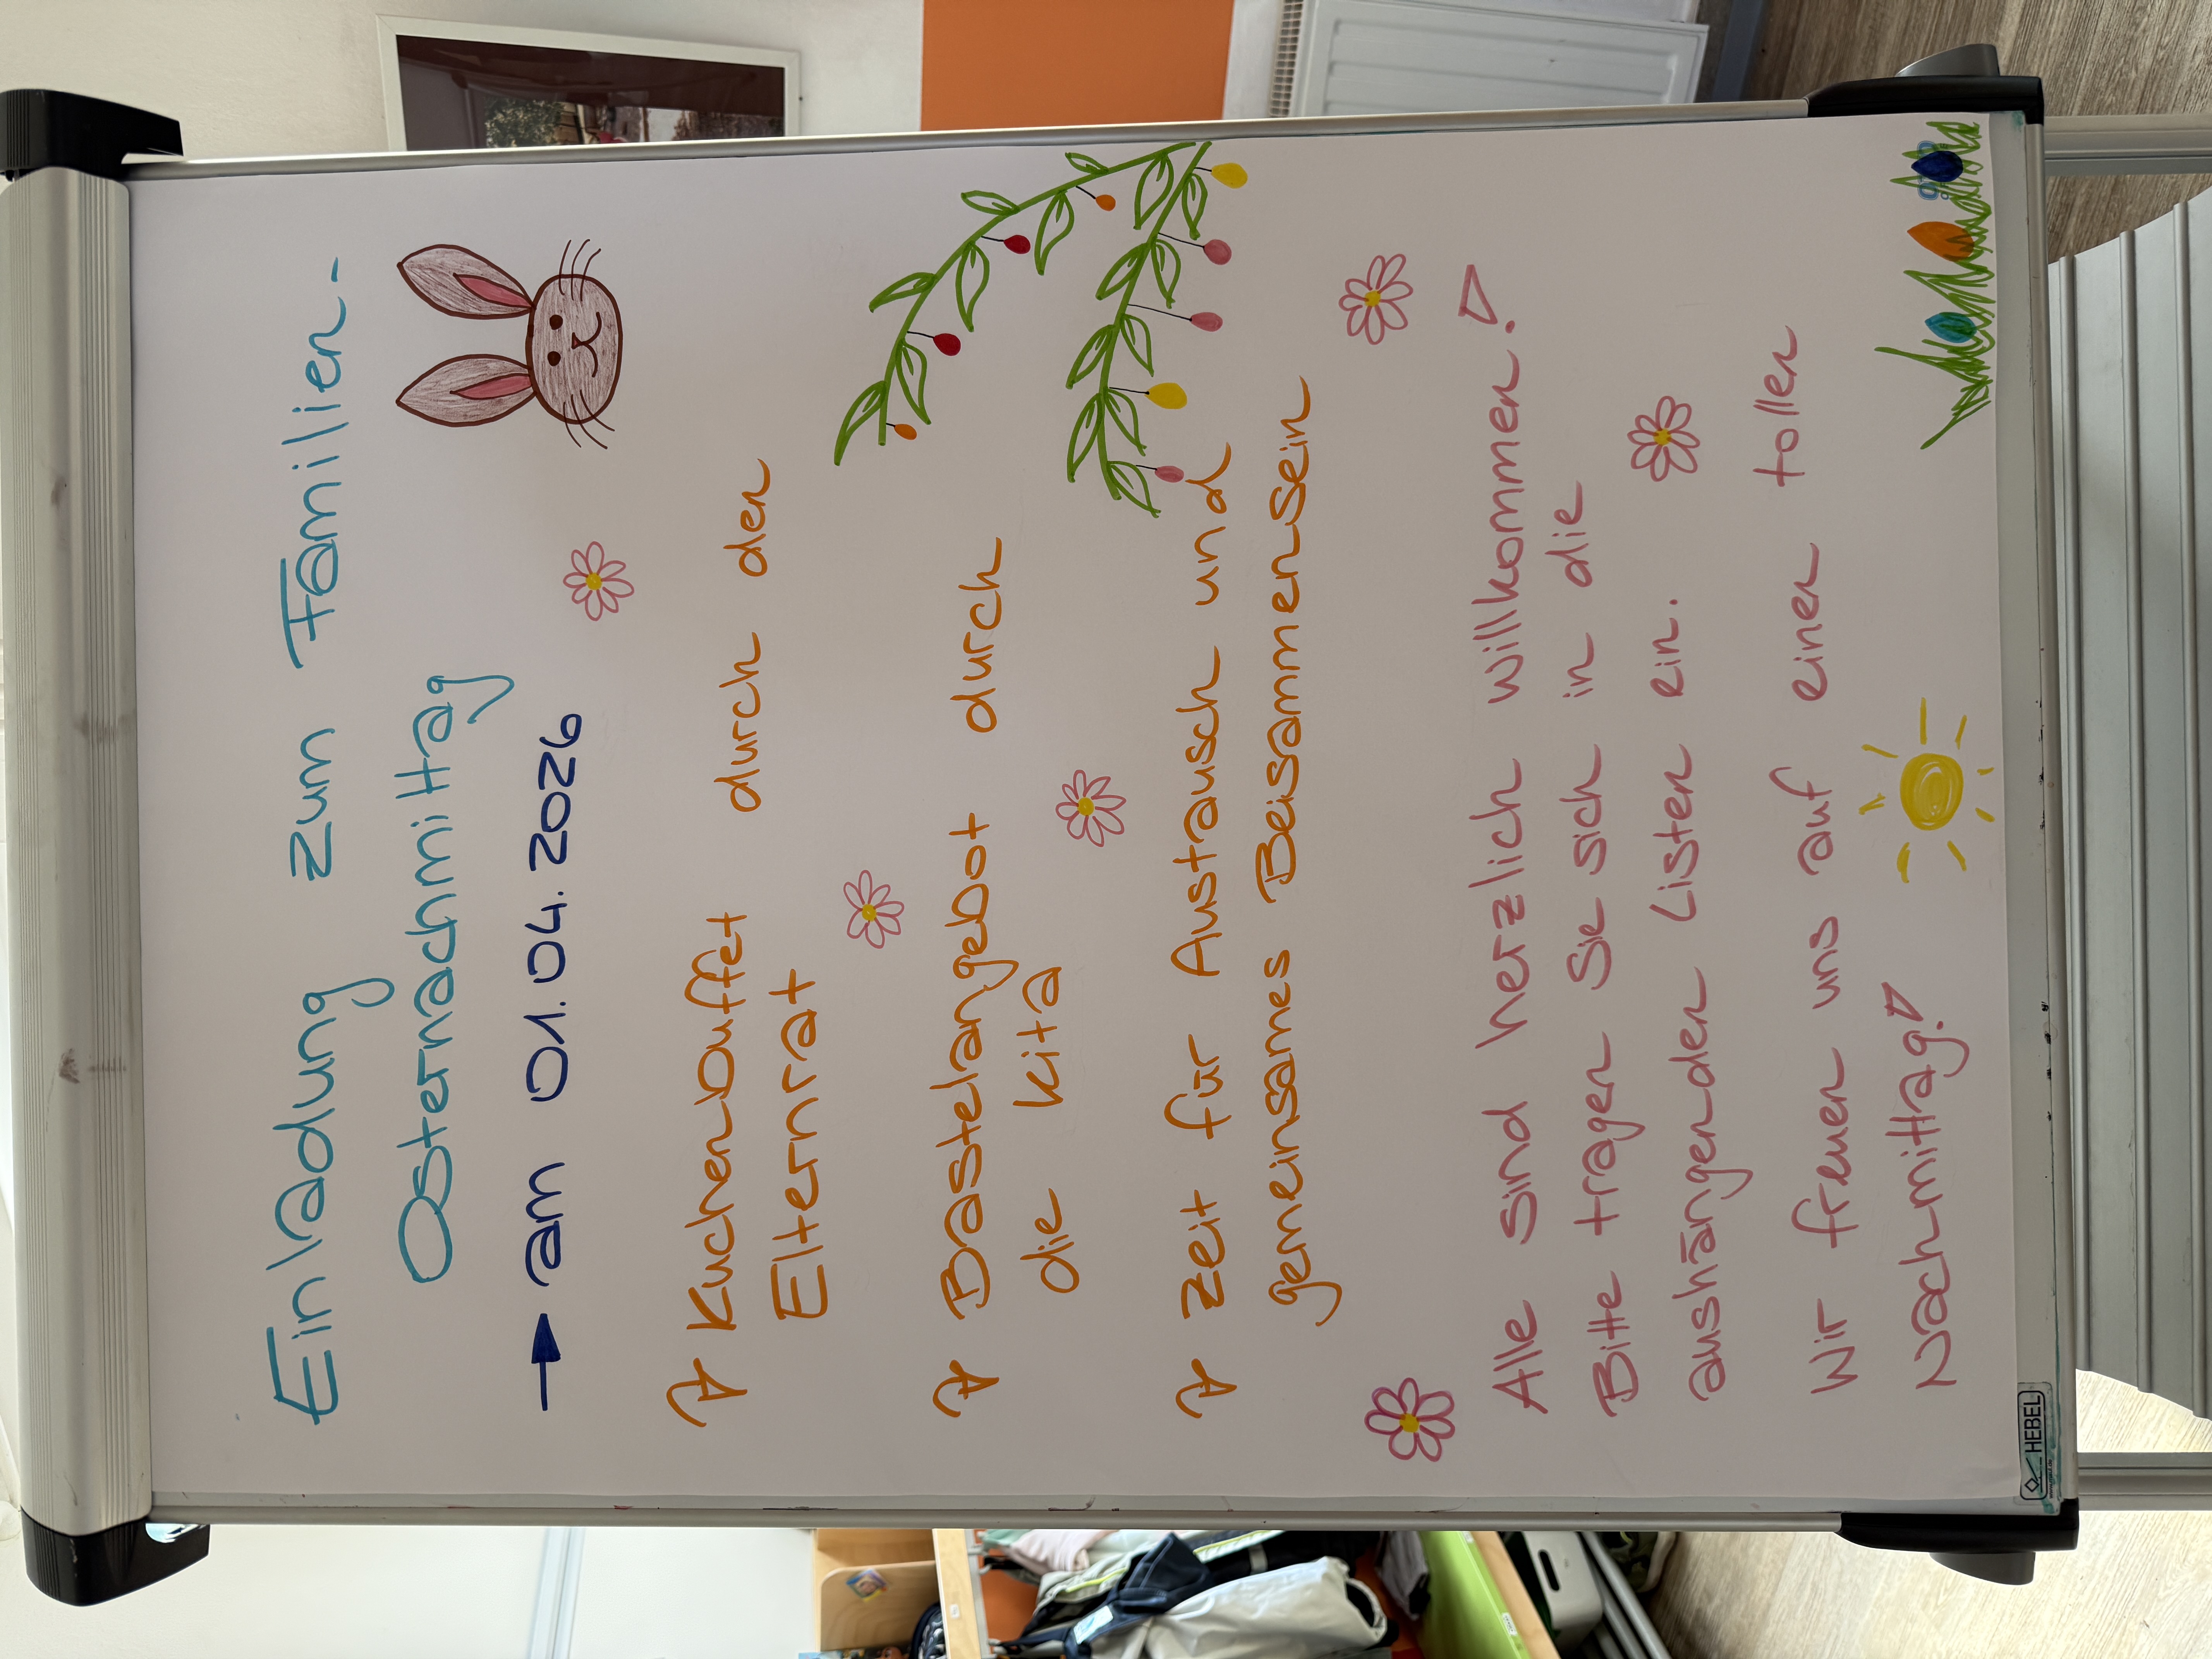 Einladung zum Familien-
Osternachmittag
→ am 01.04.2026
Kuchenbuffet durch den
Elternrat
Bastelangebot durch
die Kita
Zeit für Austausch und
gemeinsames Beisammensein
Alle sind herzlich willkommen!
Bitte tragen Sie sich in die
aushängenden Listen ein.
Wir freuen uns auf einen tollen
Nachmittag!
HEBEL